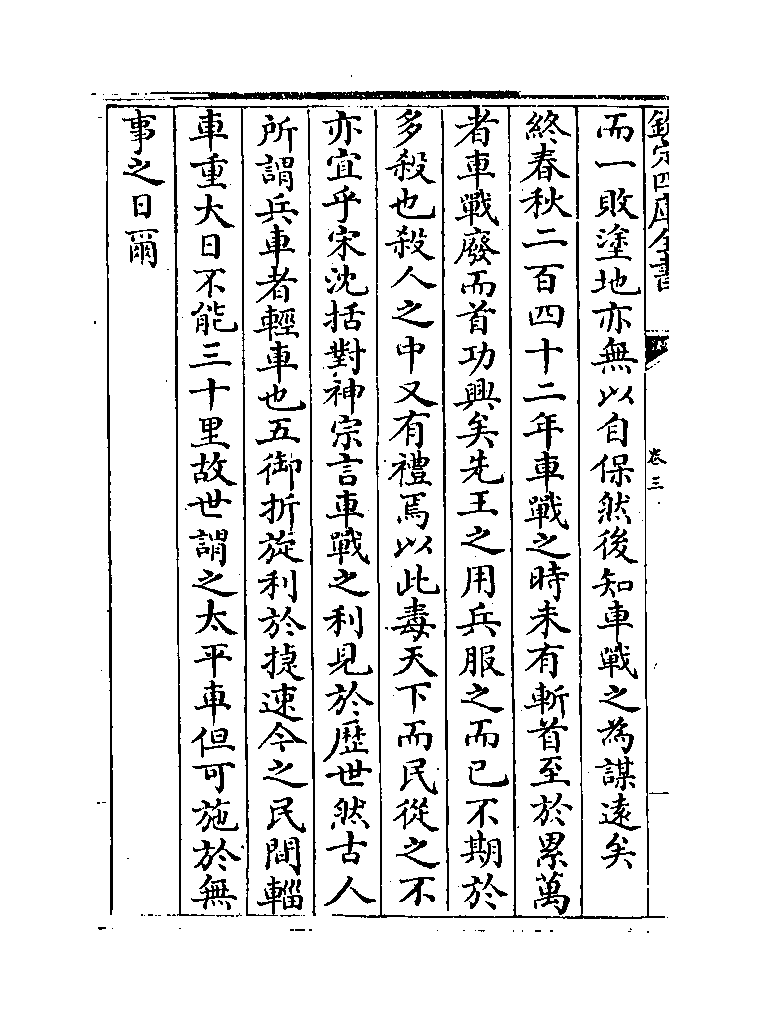 欽定四庫全書
卷三
而一敗塗地亦無以自保然後知車戰之為謀遠矣
終春秋二百四十二年車戰之時未有斬首至於累萬
者車戰廢而首功興矣先王之用兵服之而已不期於
多殺也殺人之中又有禮焉以此毒天下而民從之不
亦宜乎宋沈括對神宗言車戰之利見於歷世然古人
所謂兵車者輕車也五御折旋利於捷速今之民間輜
車重大日不能三十里故世謂之太平車但可施於無
事之日爾